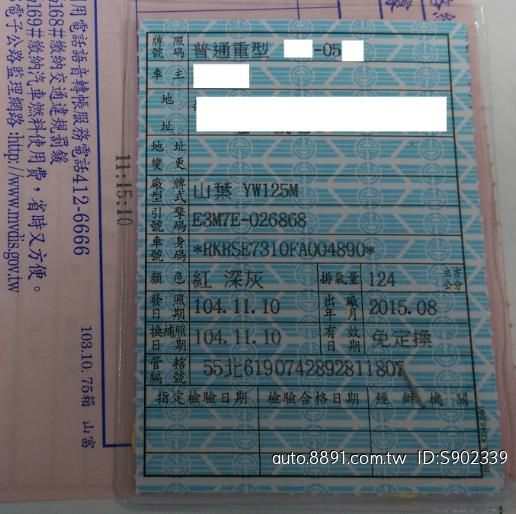 用電話語音轉帳服務電話412-6666
168#繳納交通違規罰鍰
169#繳納汽車燃料使用費，省時又方便。
電子公路監理網路:http://www.mvdis.gov.tw
103.10. 75箱 山富
11:15:10
牌照號碼 普通重型 -05
車主
地址
地址變更
廠牌型式 山葉 YW125M
引擎號碼 E3M7E-026868
車身號碼 *RKRSE7310FA004890*
顏色 紅 深灰 排氣量 124 立方公分
發照日期 104.11.10 出廠年月 2015.08
換補照日期 104.11.10 有效日期 免定換
管轄編號 55北6190742892811807
指定檢驗日期 檢驗合格日期 經辦機關
auto.8891.com.tw ID:S902339